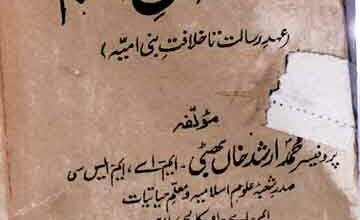 (عہدِ رسالت تا خلافت بنی امیہ)
مؤلفہ
پروفیسر محمد ارشد خاں بھٹی۔ ایم اے، ایم ایس سی
صدر شعبۂ علوم اسلامیہ و معلم حیاتیات